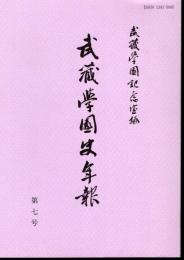 武蔵学園記念室編
武蔵學園史年報
第七号